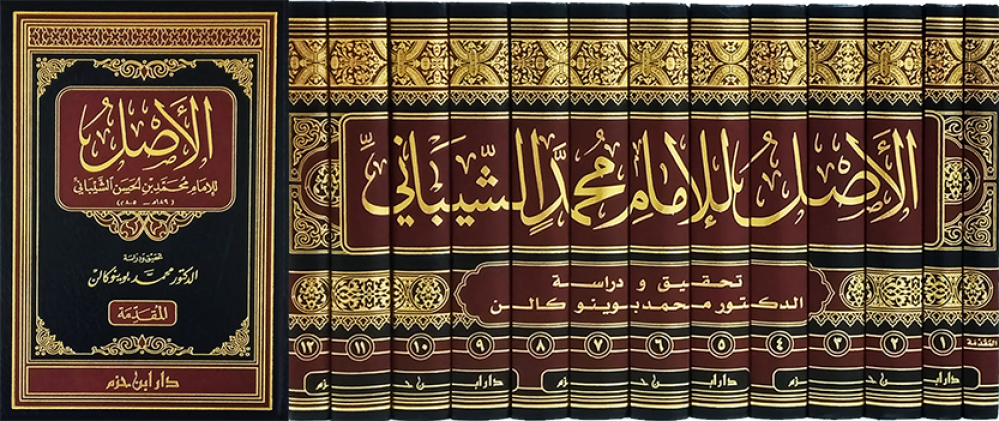 الأصل
للإمام محمد بن الحسن الشيباني
(١٨٩هـ - ٨٠٥م)
تحقيق ودراسة
الدكتور محمد بوينوكالن
المقدمة
دار ابن حزم
الأصل للإمام محمد الشيباني
تحقيق و دراسة
الدكتور محمد بوينو كالن
المقدمة ١ ٢ ٣ ٤ ٥ ٦ ٧ ٨ ٩ ١٠ ١١ ١٢
دار ابن حزم دار ابن حزم دار ابن حزم